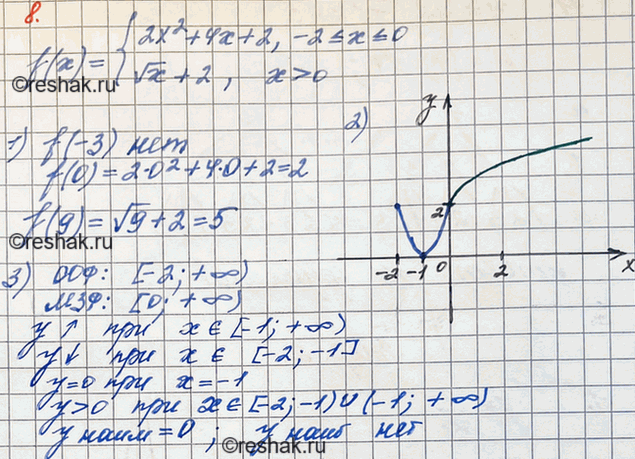 8.
f(x) = { 2x² + 4x + 2, -2 ≤ x ≤ 0
√x + 2, x > 0
©reshak.ru
1) f(-3) нет
f(0) = 2·0² + 4·0 + 2 = 2
f(9) = √9 + 2 = 5
©reshak.ru
2)
y
2
-2 -1 0 2 x
3) ООФ: [-2; +∞)
МЗФ: [0; +∞)
y ↑ при x ∈ [-1; +∞)
y ↓ при x ∈ [-2; -1]
y = 0 при x = -1
y > 0 при x ∈ [-2; -1) ∪ (-1; +∞)
y наим = 0; y наиб нет
©reshak.ru